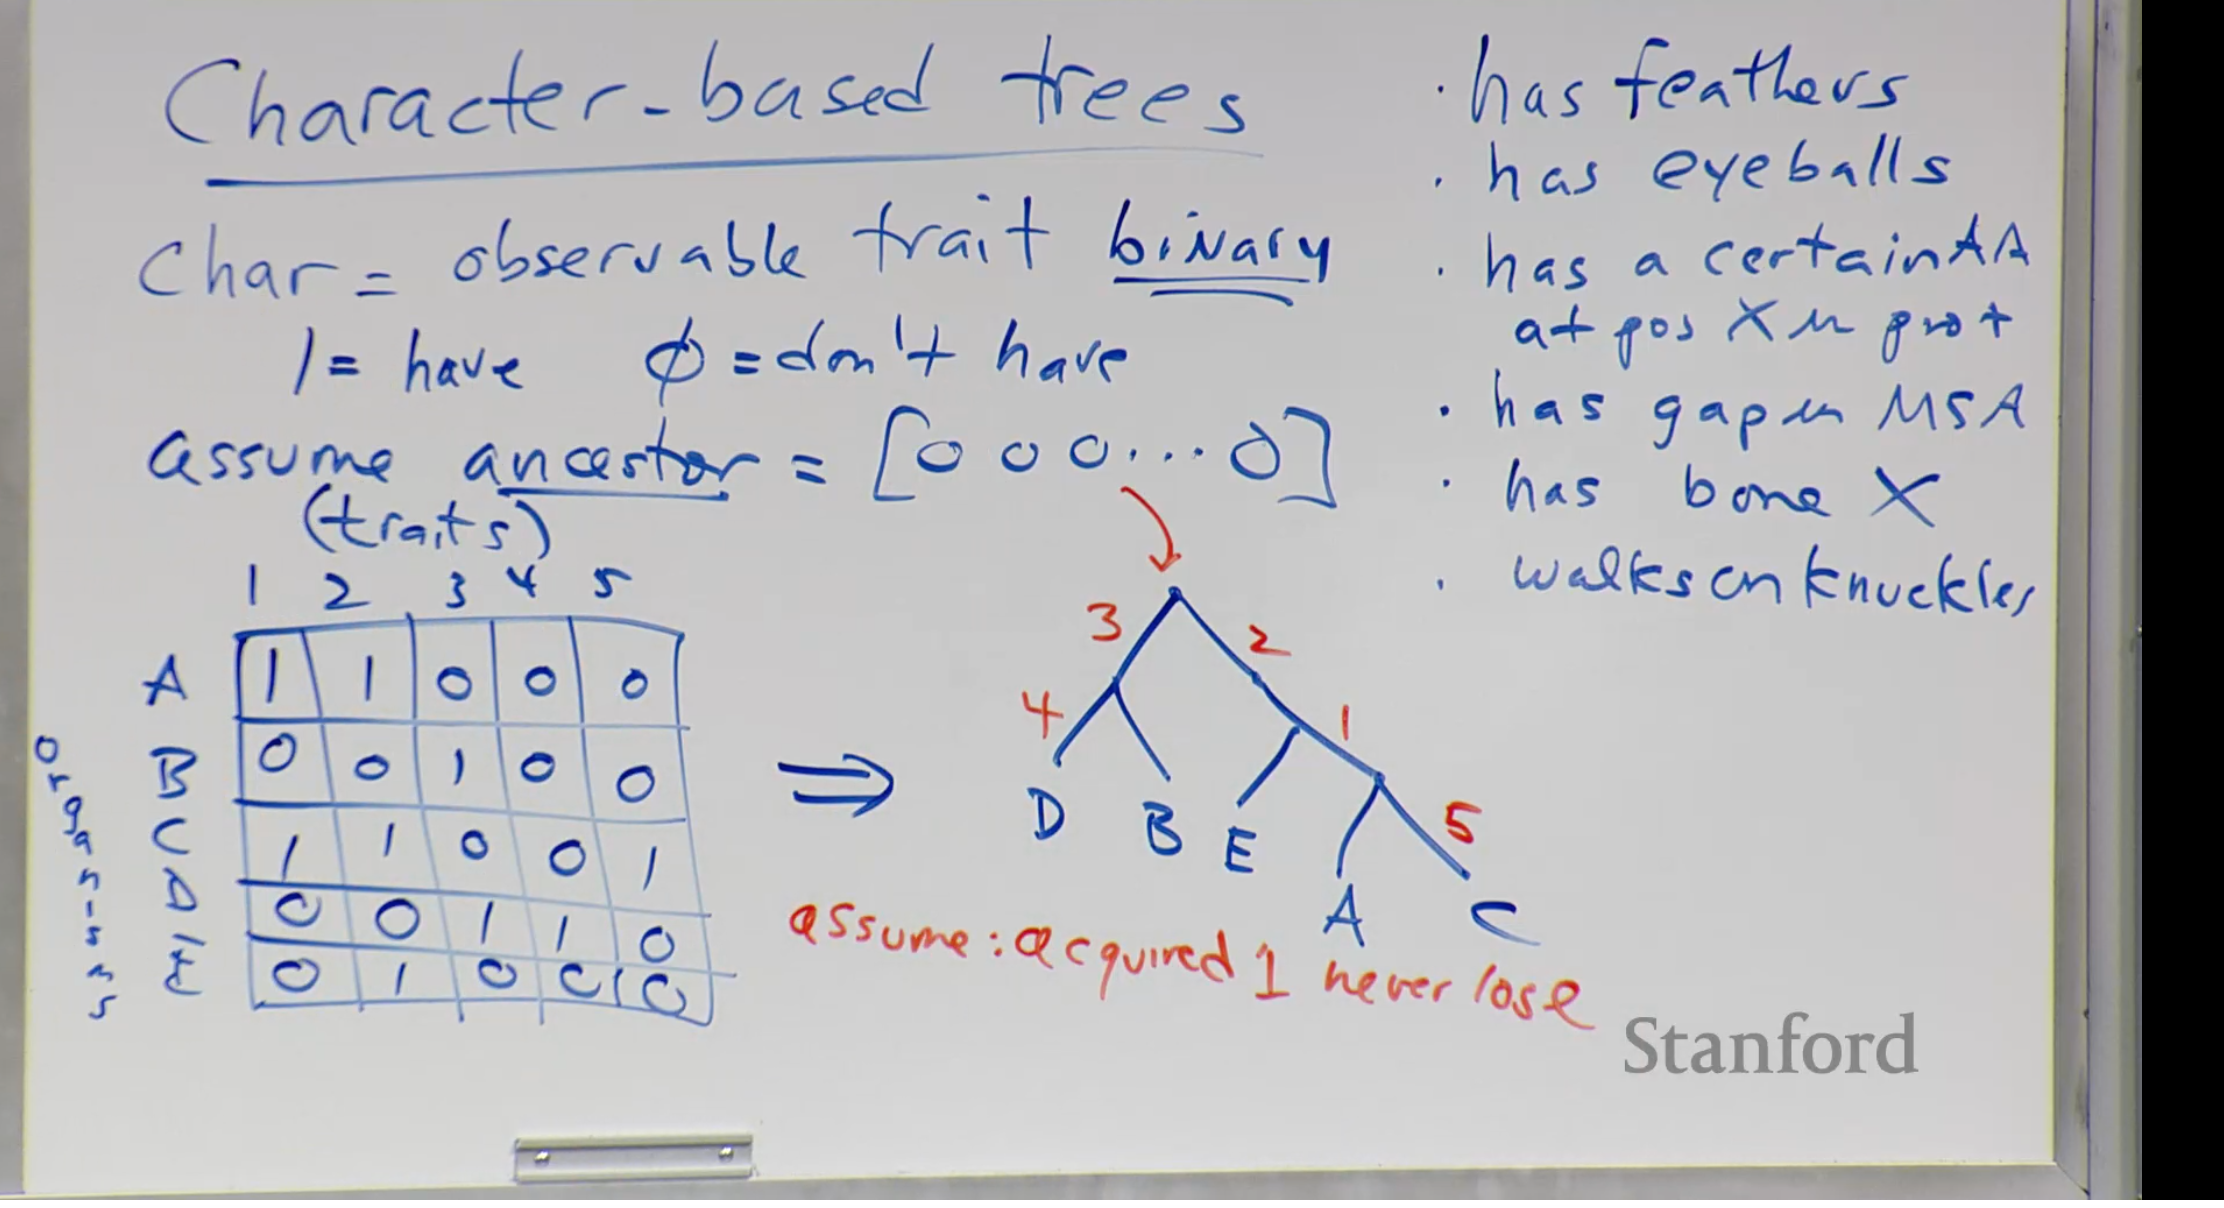 Character-based trees
char = observable trait binary
1 = have ϕ = don't have
assume ancestor = [0 0 0 ... 0]
(traits)
1 2 3 4 5
A 1 1 0 0 0
B 0 0 1 0 0
C 1 1 0 0 1
D 0 0 1 1 0
E 0 1 0 0 0
organisms
⇒
3 2
4 1
5
D B E
A C
assume: acquired 1 never lose
· has feathers
· has eyeballs
· has a certain AA
at pos X in prot
· has gap in MSA
· has bone X
· walks on knuckles
Stanford